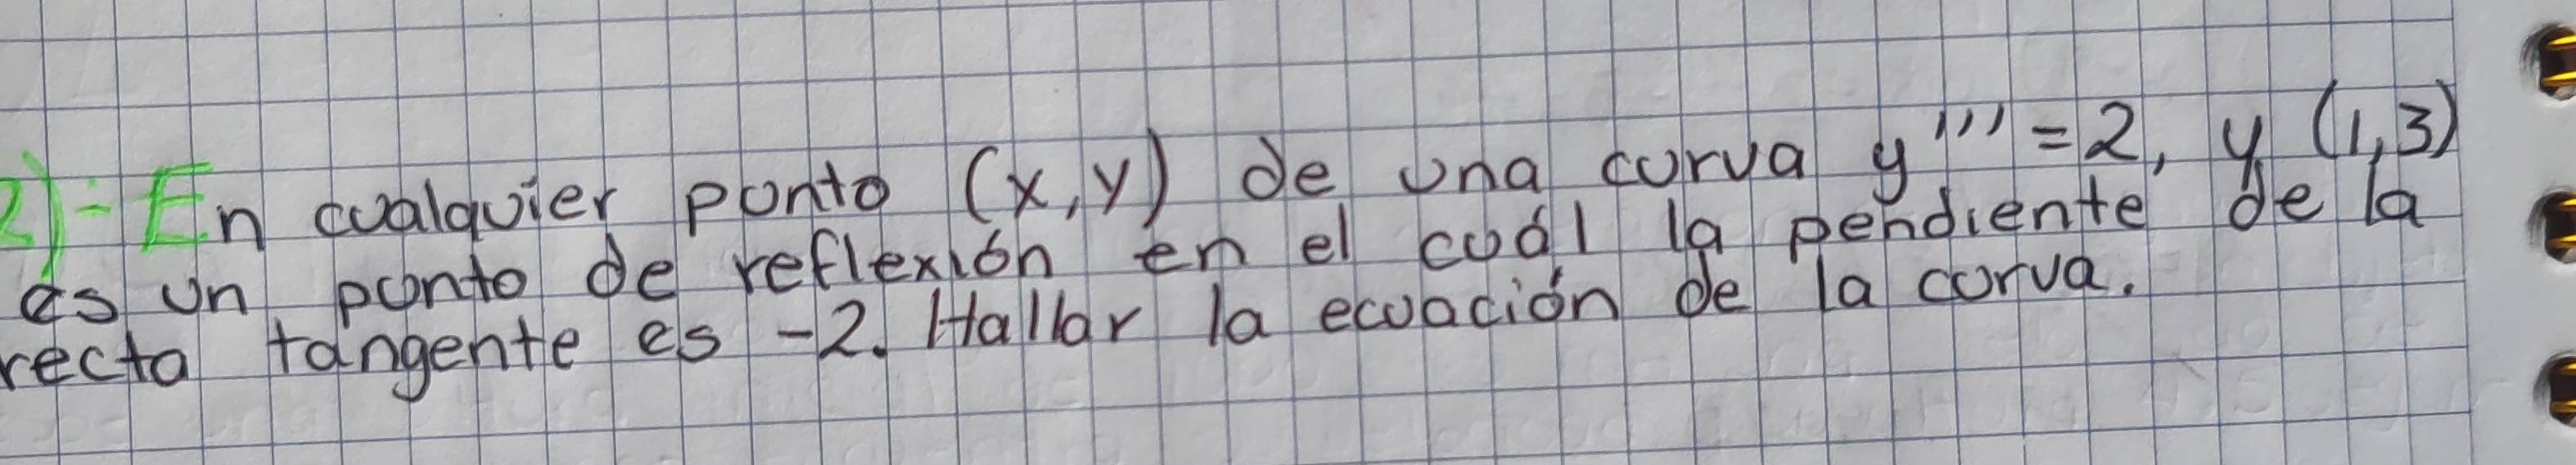 2)-En cualquier punto (x,y) de una curva y'''=2, y (1,3)
es un punto de reflexión en el cuál la pendiente de la
recta tangente es -2. Hallar la ecuación de la curva.